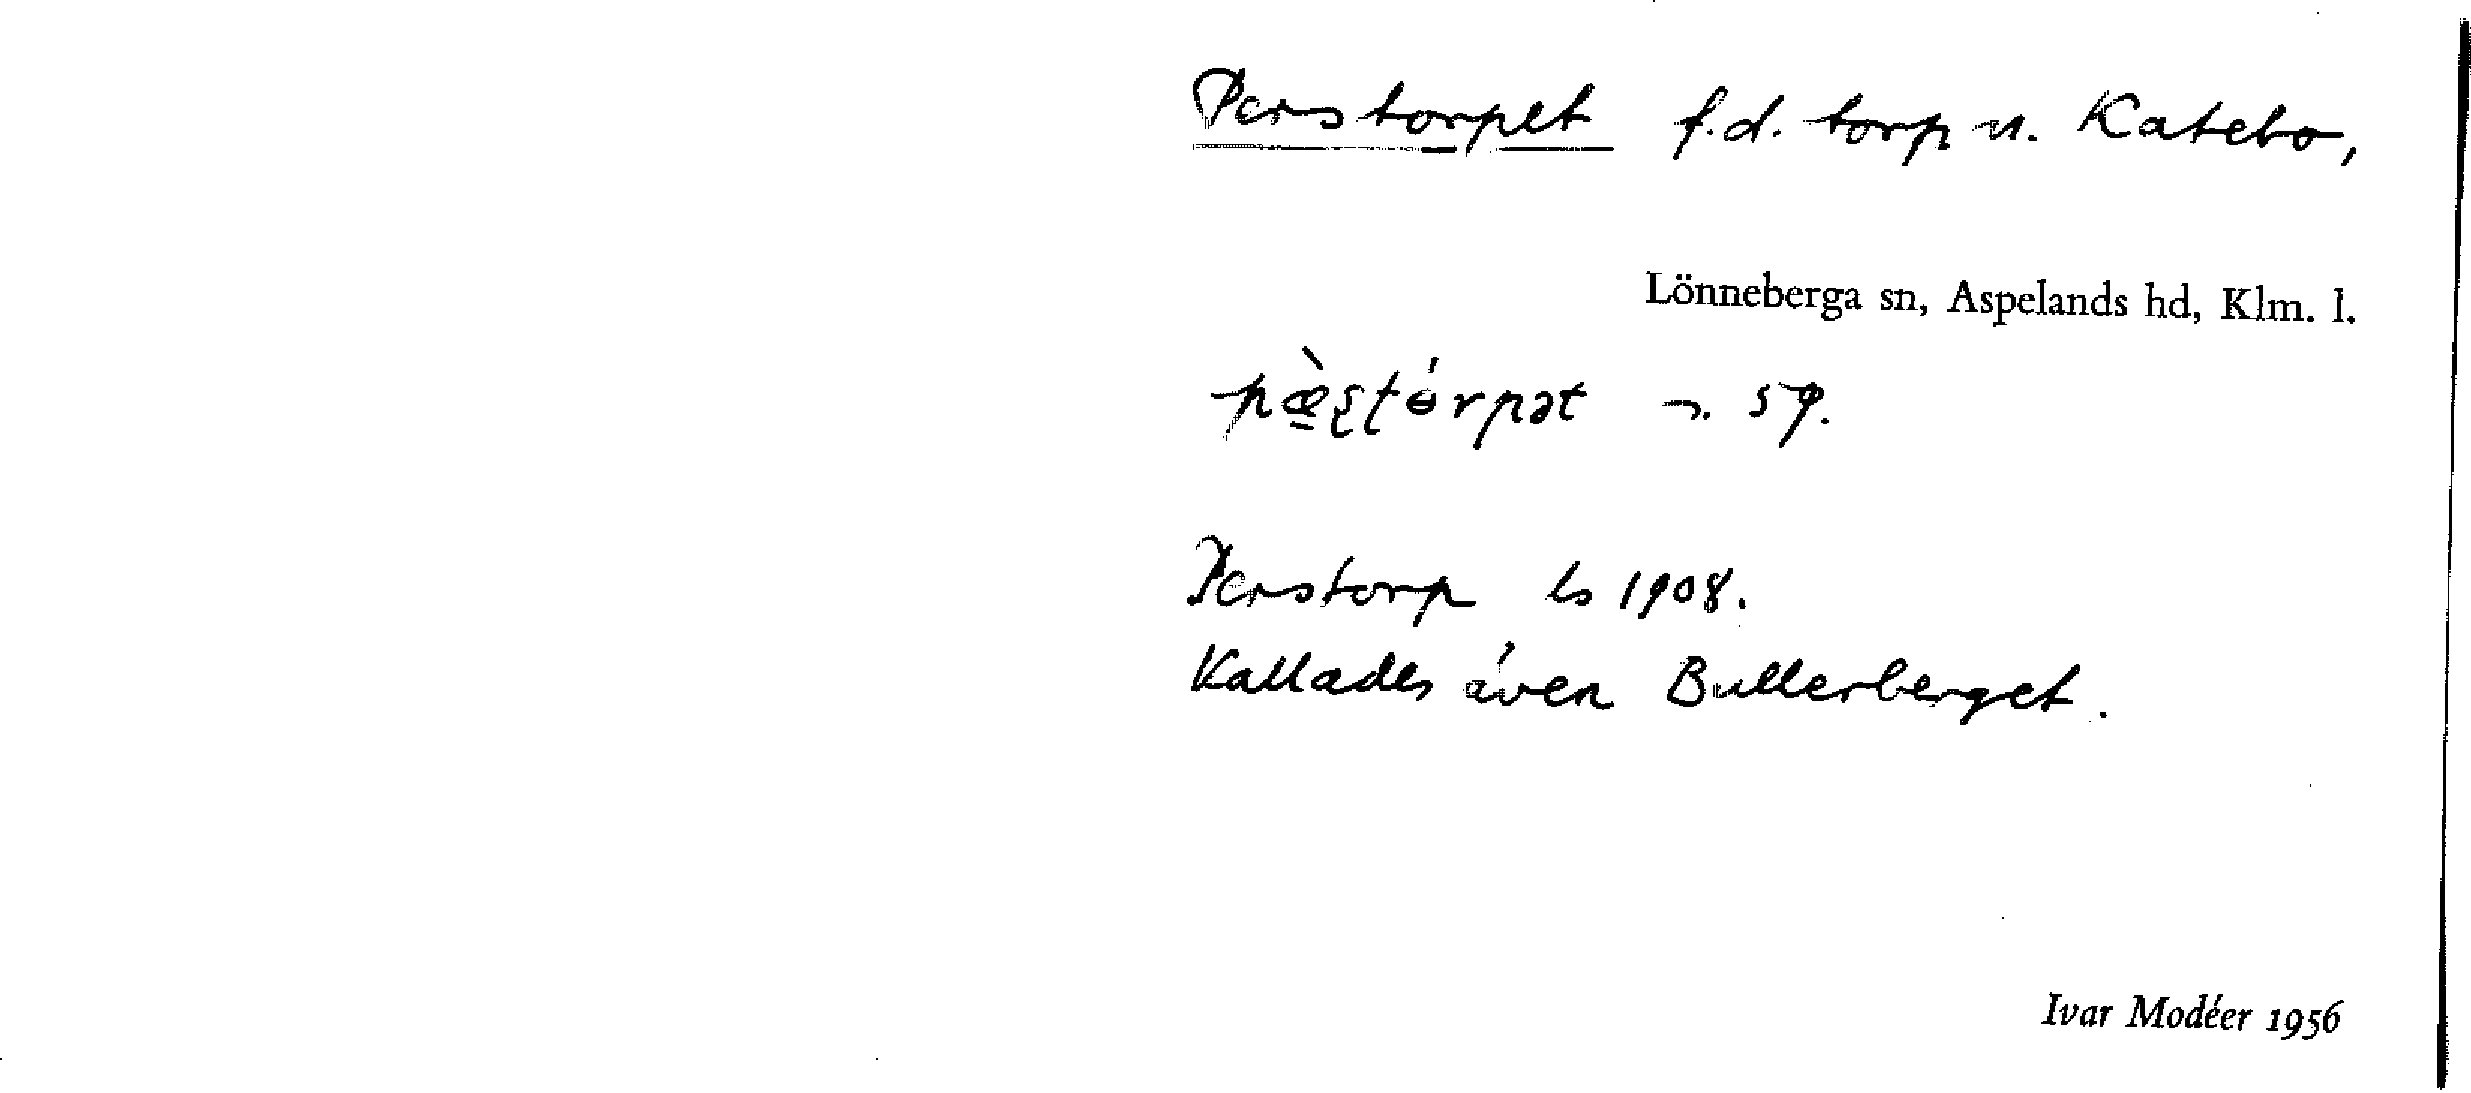 Perstorpet f.d. torp u. Katebo,
Lönneberga sn, Aspelands hd, Klm. l.
pæ̠̀ʂʈɵ́rpət
Perstorp ls 1908.
Kallades även Bullerberget.
Ivar Modéer 1956